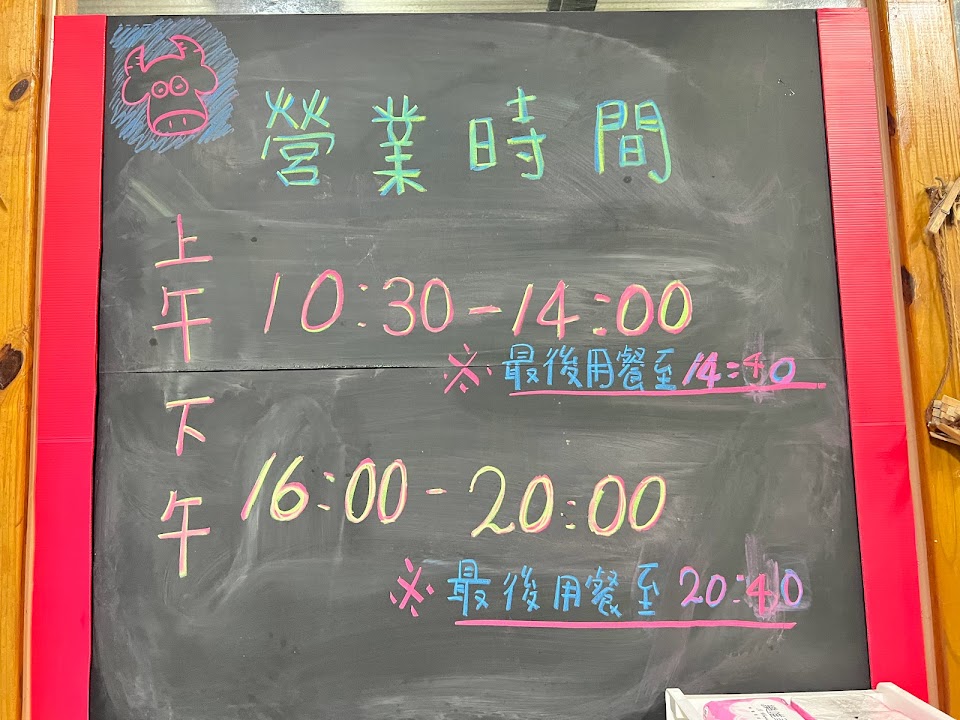 營業時間
上午 10:30-14:00
※最後用餐至14:40
下午 16:00-20:00
※最後用餐至20:40